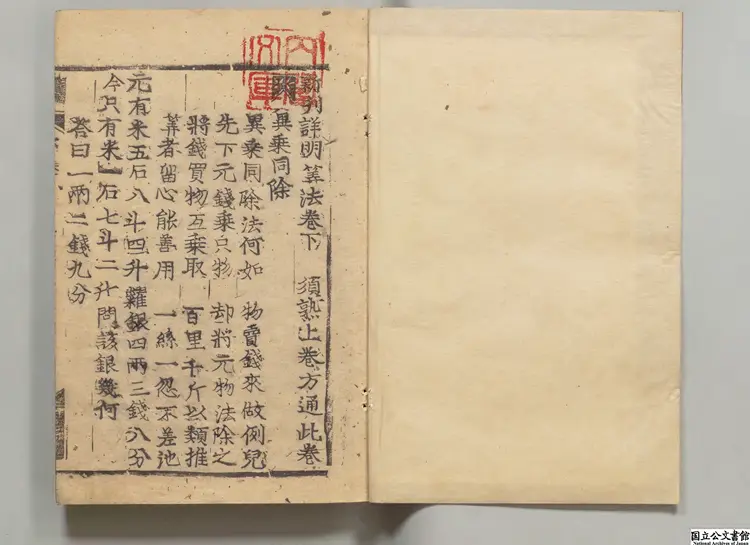 新刋詳明筭法卷下　須熟上卷方通此卷
異乗同除
異乗同除法何如　物賣錢來做例兒
先下元錢乗只物　却將元物法除之
將錢買物互乗取　百里千斤以類推
筭者留心能善用　一絲一忽不差池
元有米五石八斗四升糶銀四兩三錢八分
今只有米一石七斗二升問該銀幾何
荅曰一兩二錢九分
国立公文書館
National Archives of Japan